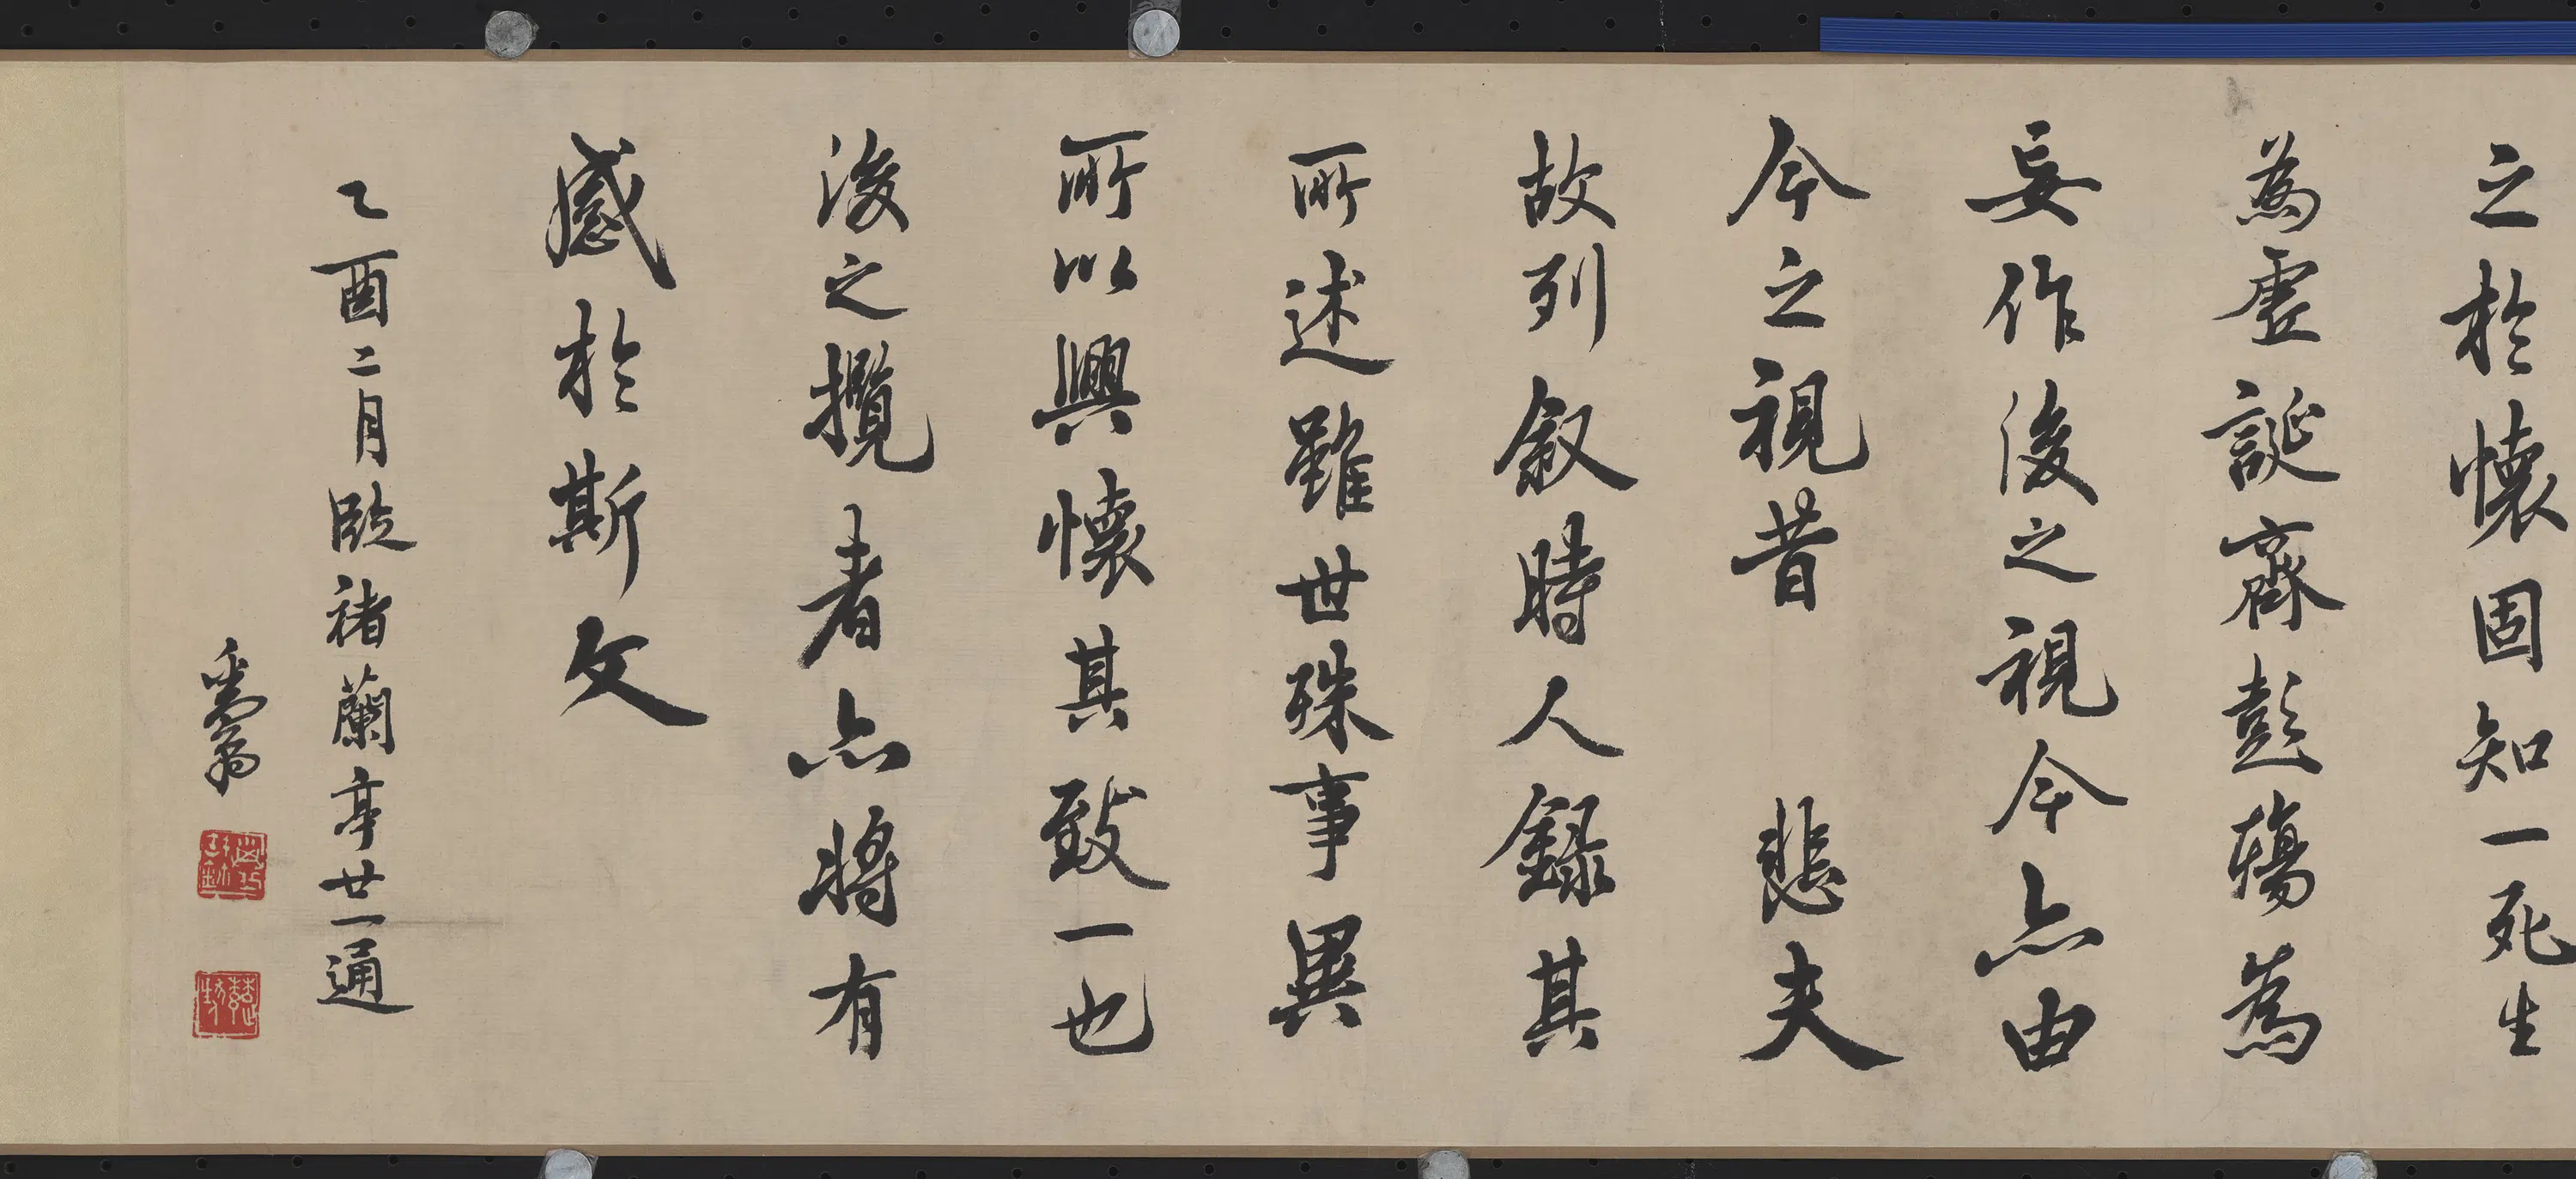 之於懷固知一死生
為虛誕齊彭殤為
妄作後之視今亦由
今之視昔 悲夫
故列叙時人錄其
所述雖世殊事異
所以興懷其致一也
後之攬者亦將有
感於斯文
乙酉二月臨褚蘭亭廿一通